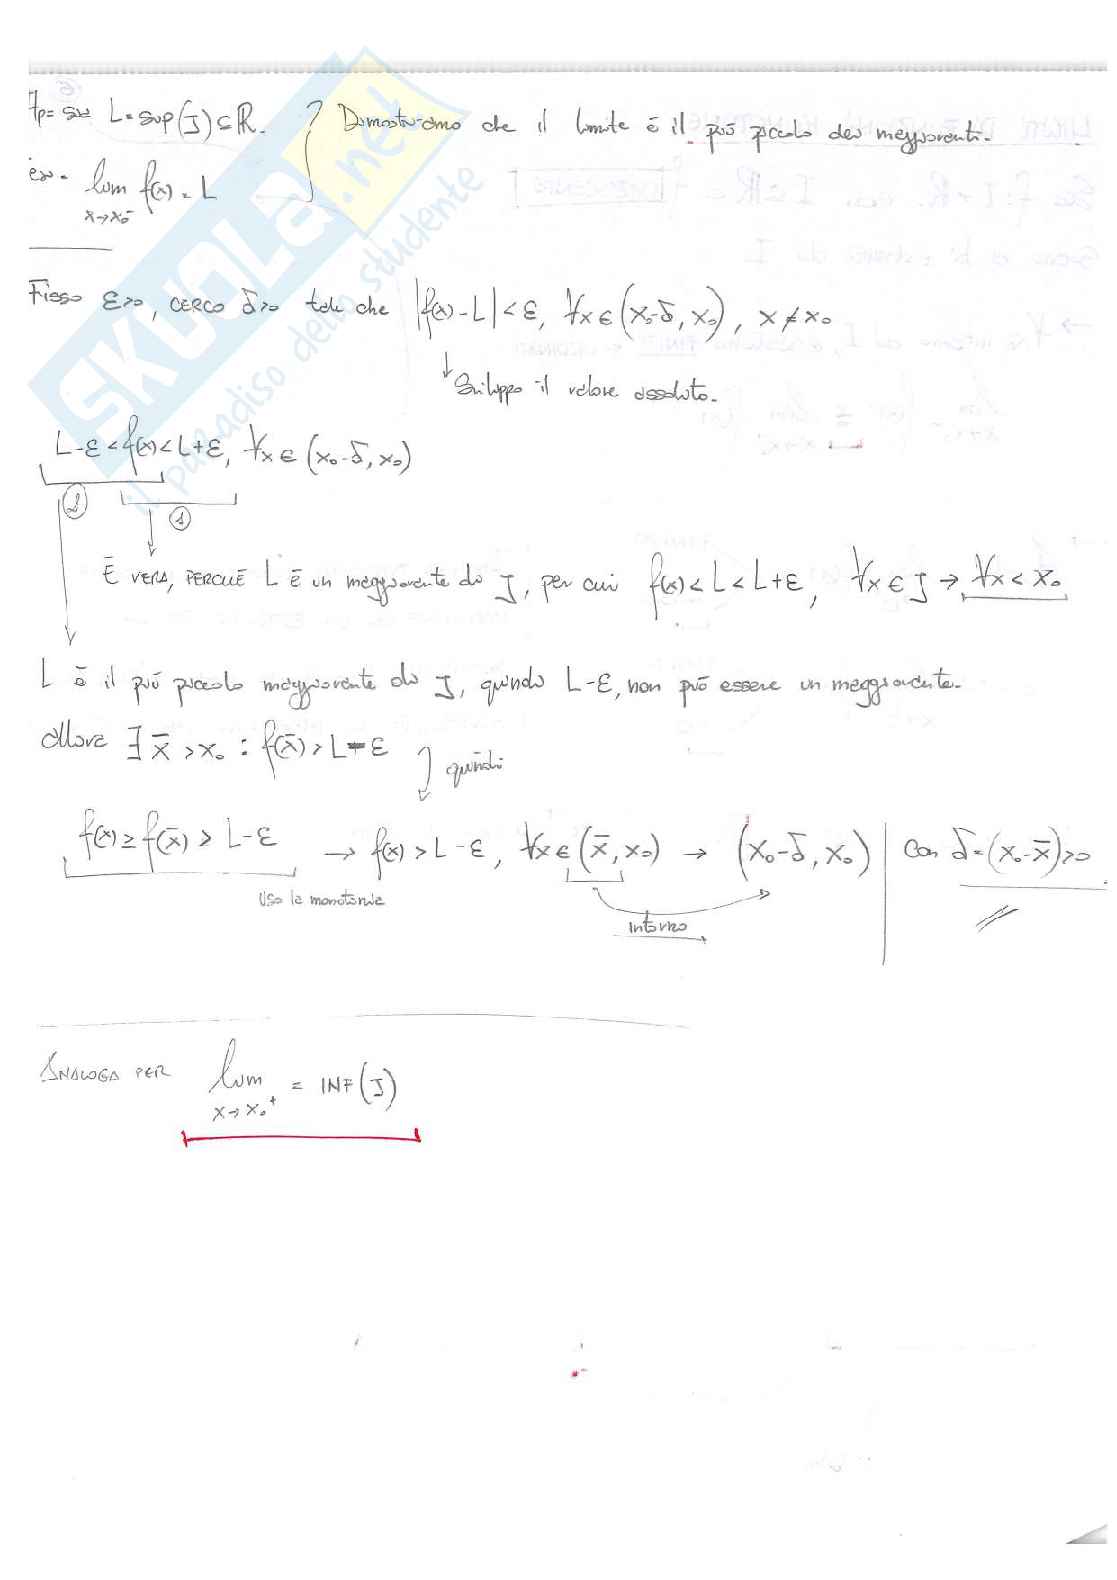 Hp= sia L=sup(J)⊆R. } Dimostriamo che il limite è il più piccolo dei maggioranti.
lim f(x) = L
x→x₀⁻
Fisso ε>0, CERCO δ>0 tale che |f(x)-L|<ε, ∀x∈(x₀-δ, x₀), x≠x₀
↓ Sviluppo il valore assoluto.
L-ε<f(x)<L+ε, ∀x∈(x₀-δ, x₀)
② ①
È VERA, PERCHÉ L è un maggiorante di J, per cui f(x)<L<L+ε, ∀x∈J → ∀x<x₀
L è il più piccolo maggiorante di J, quindi L-ε, non può essere un maggiorante.
allora ∃x̄>x₀ : f(x̄)>L-ε quindi
f(x)≥f(x̄)>L-ε → f(x)>L-ε, ∀x∈(x̄, x₀) → (x₀-δ, x₀) | con δ=(x₀-x̄)>0
Uso la monotonia
intorno
ANALOGA PER lim = INF(J)
x→x₀⁺
SKUOLA.net
il paradiso dello studente